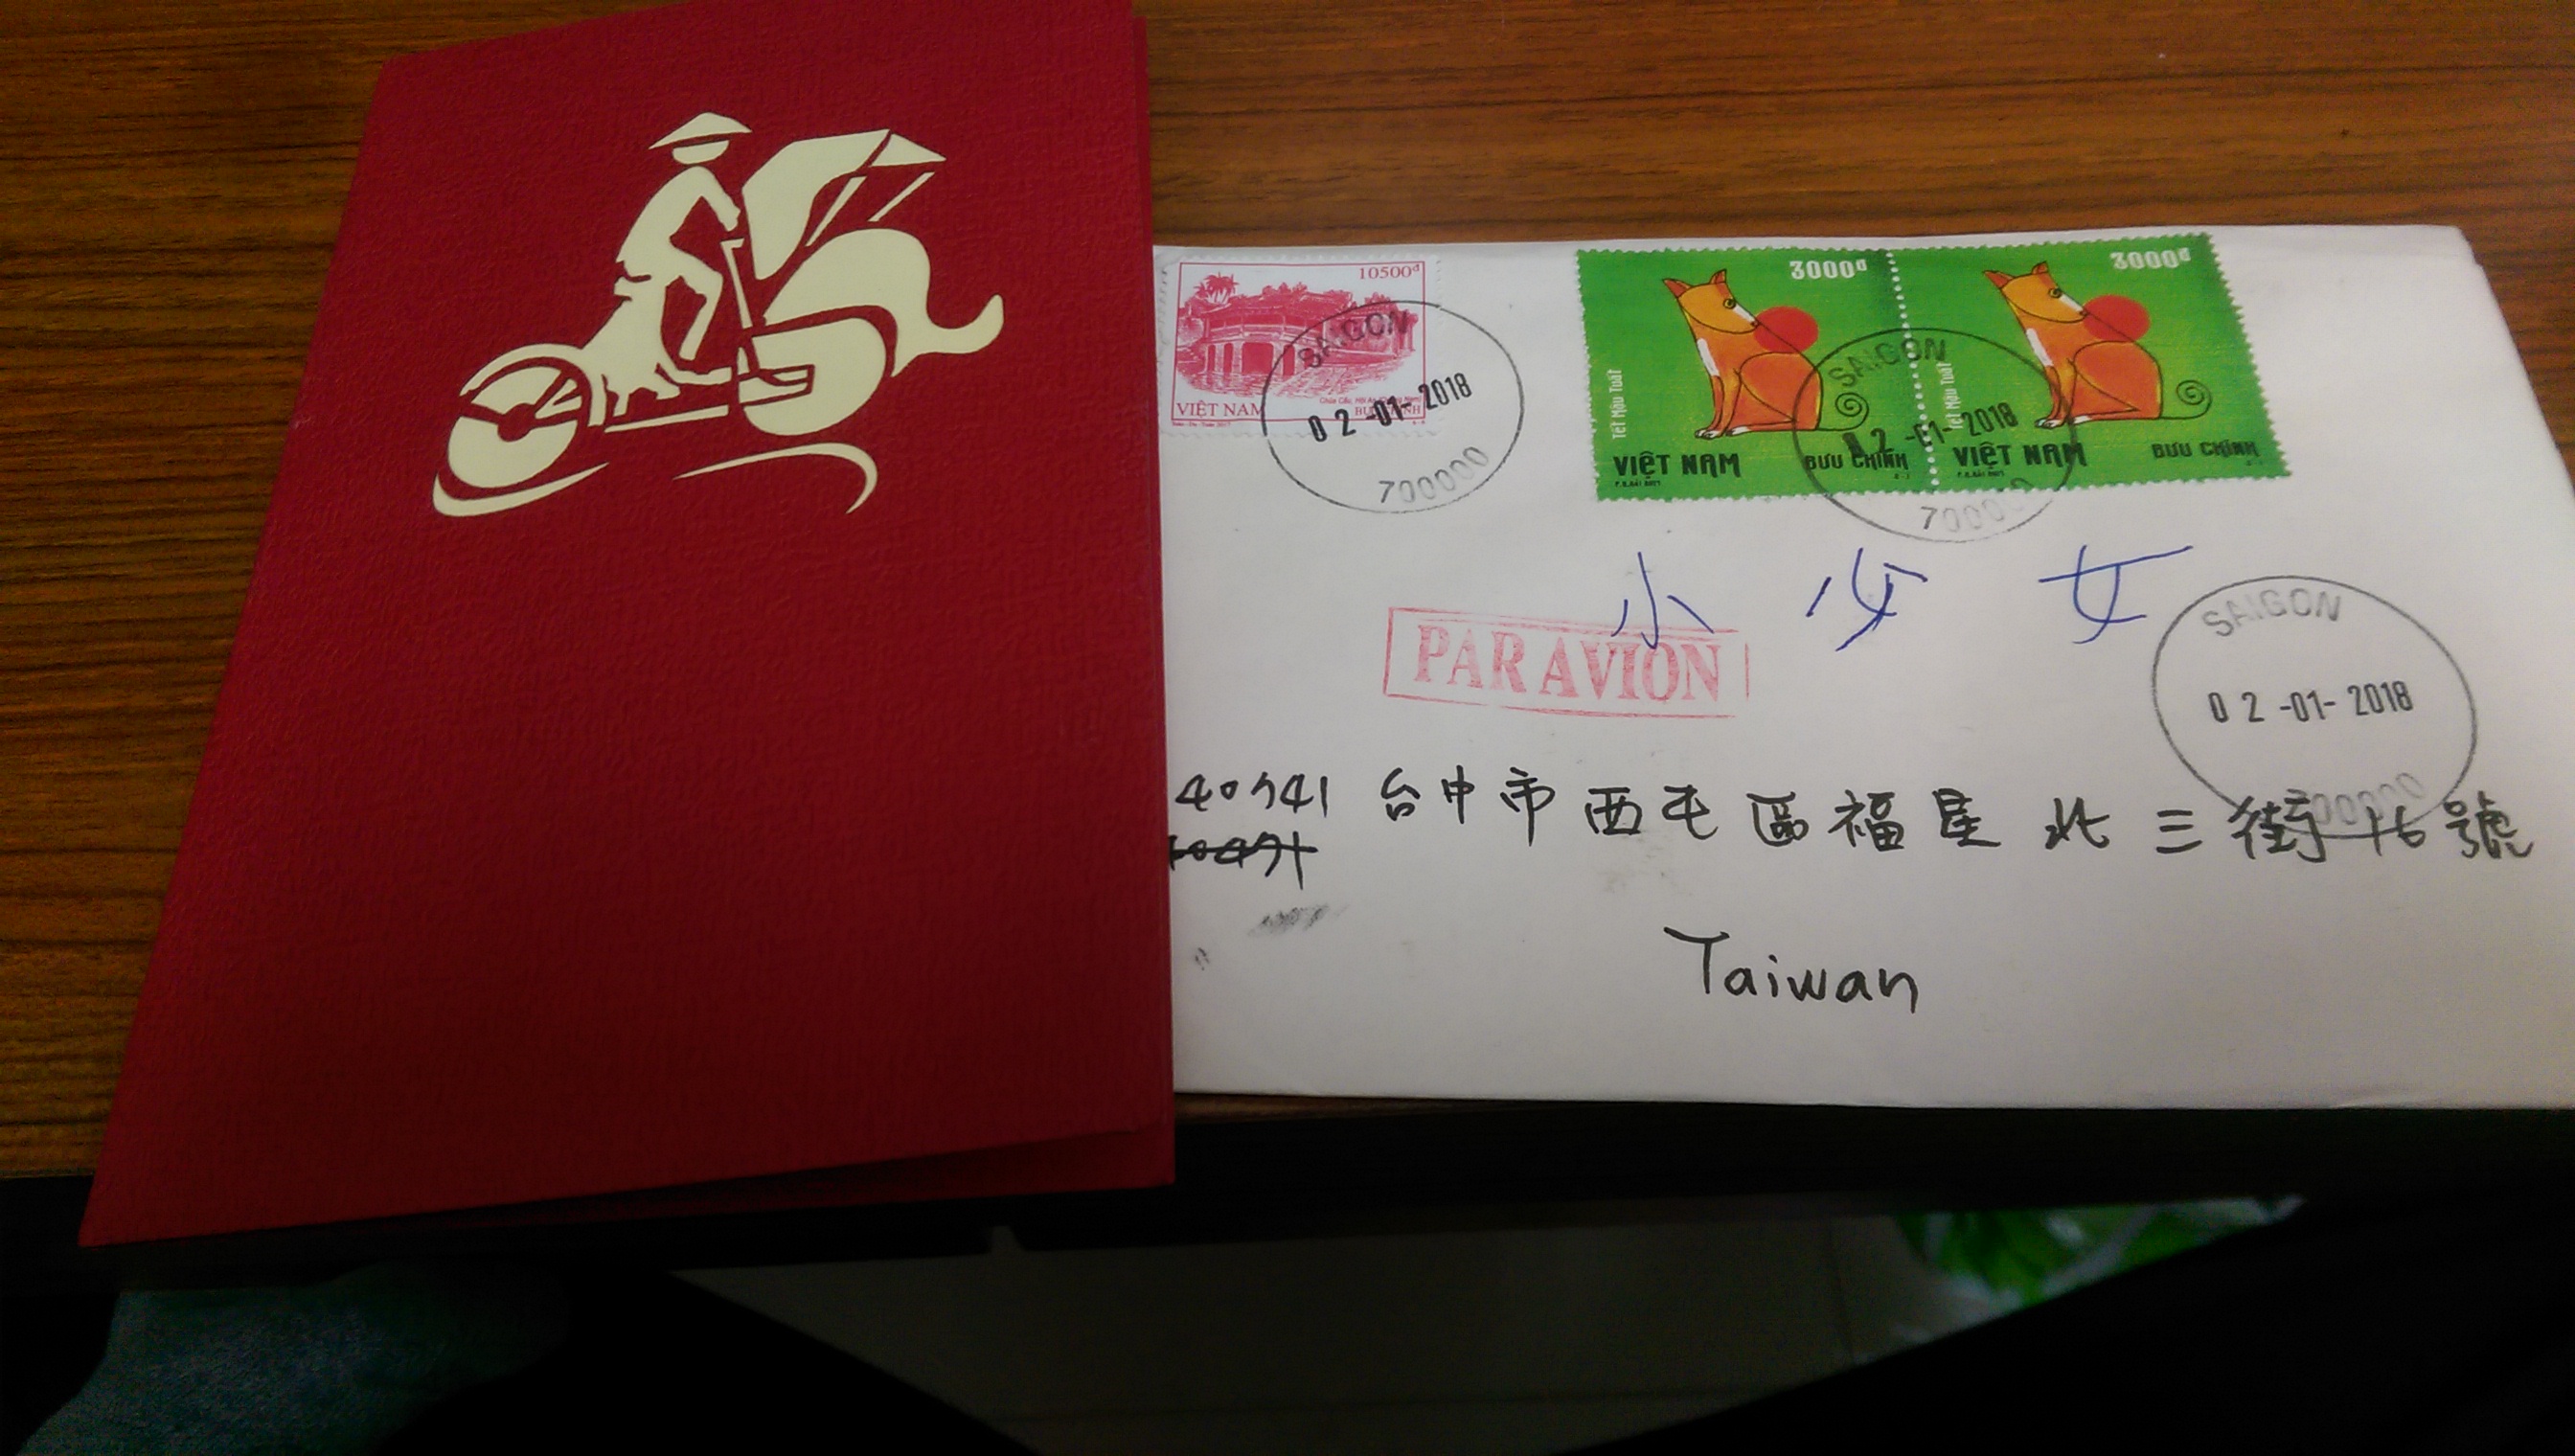 10500đ
VIỆT NAM
BƯU CHÍNH
SAIGON
02-01-2018
700000
3000đ
Tết Mậu Tuất
VIỆT NAM
BƯU CHÍNH
3000đ
Tết Mậu Tuất
VIỆT NAM
BƯU CHÍNH
SAIGON
02-01-2018
70000
小少女
PAR AVION
SAIGON
02-01-2018
00000
台中市西屯區福星北三街16號
Taiwan